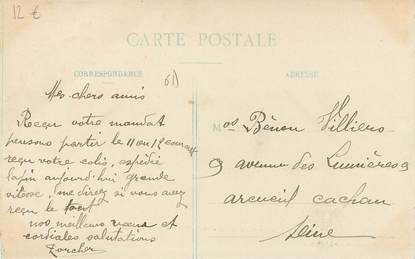 12 €
CARTE POSTALE
CORRESPONDANCE
ADRESSE
Mes chers amis
Reçu votre mandat
pensons partir le 11 ou 12 courant
reçu votre colis, expédié
lapin aujourd'hui grande
vitesse, me direz si vous avez
reçu le tout
nos meilleurs vœux et
cordiales salutations
Zorcher
Mos Bénon Villiers
9 avenue des Lumières 9
arcueil cachan
Seine